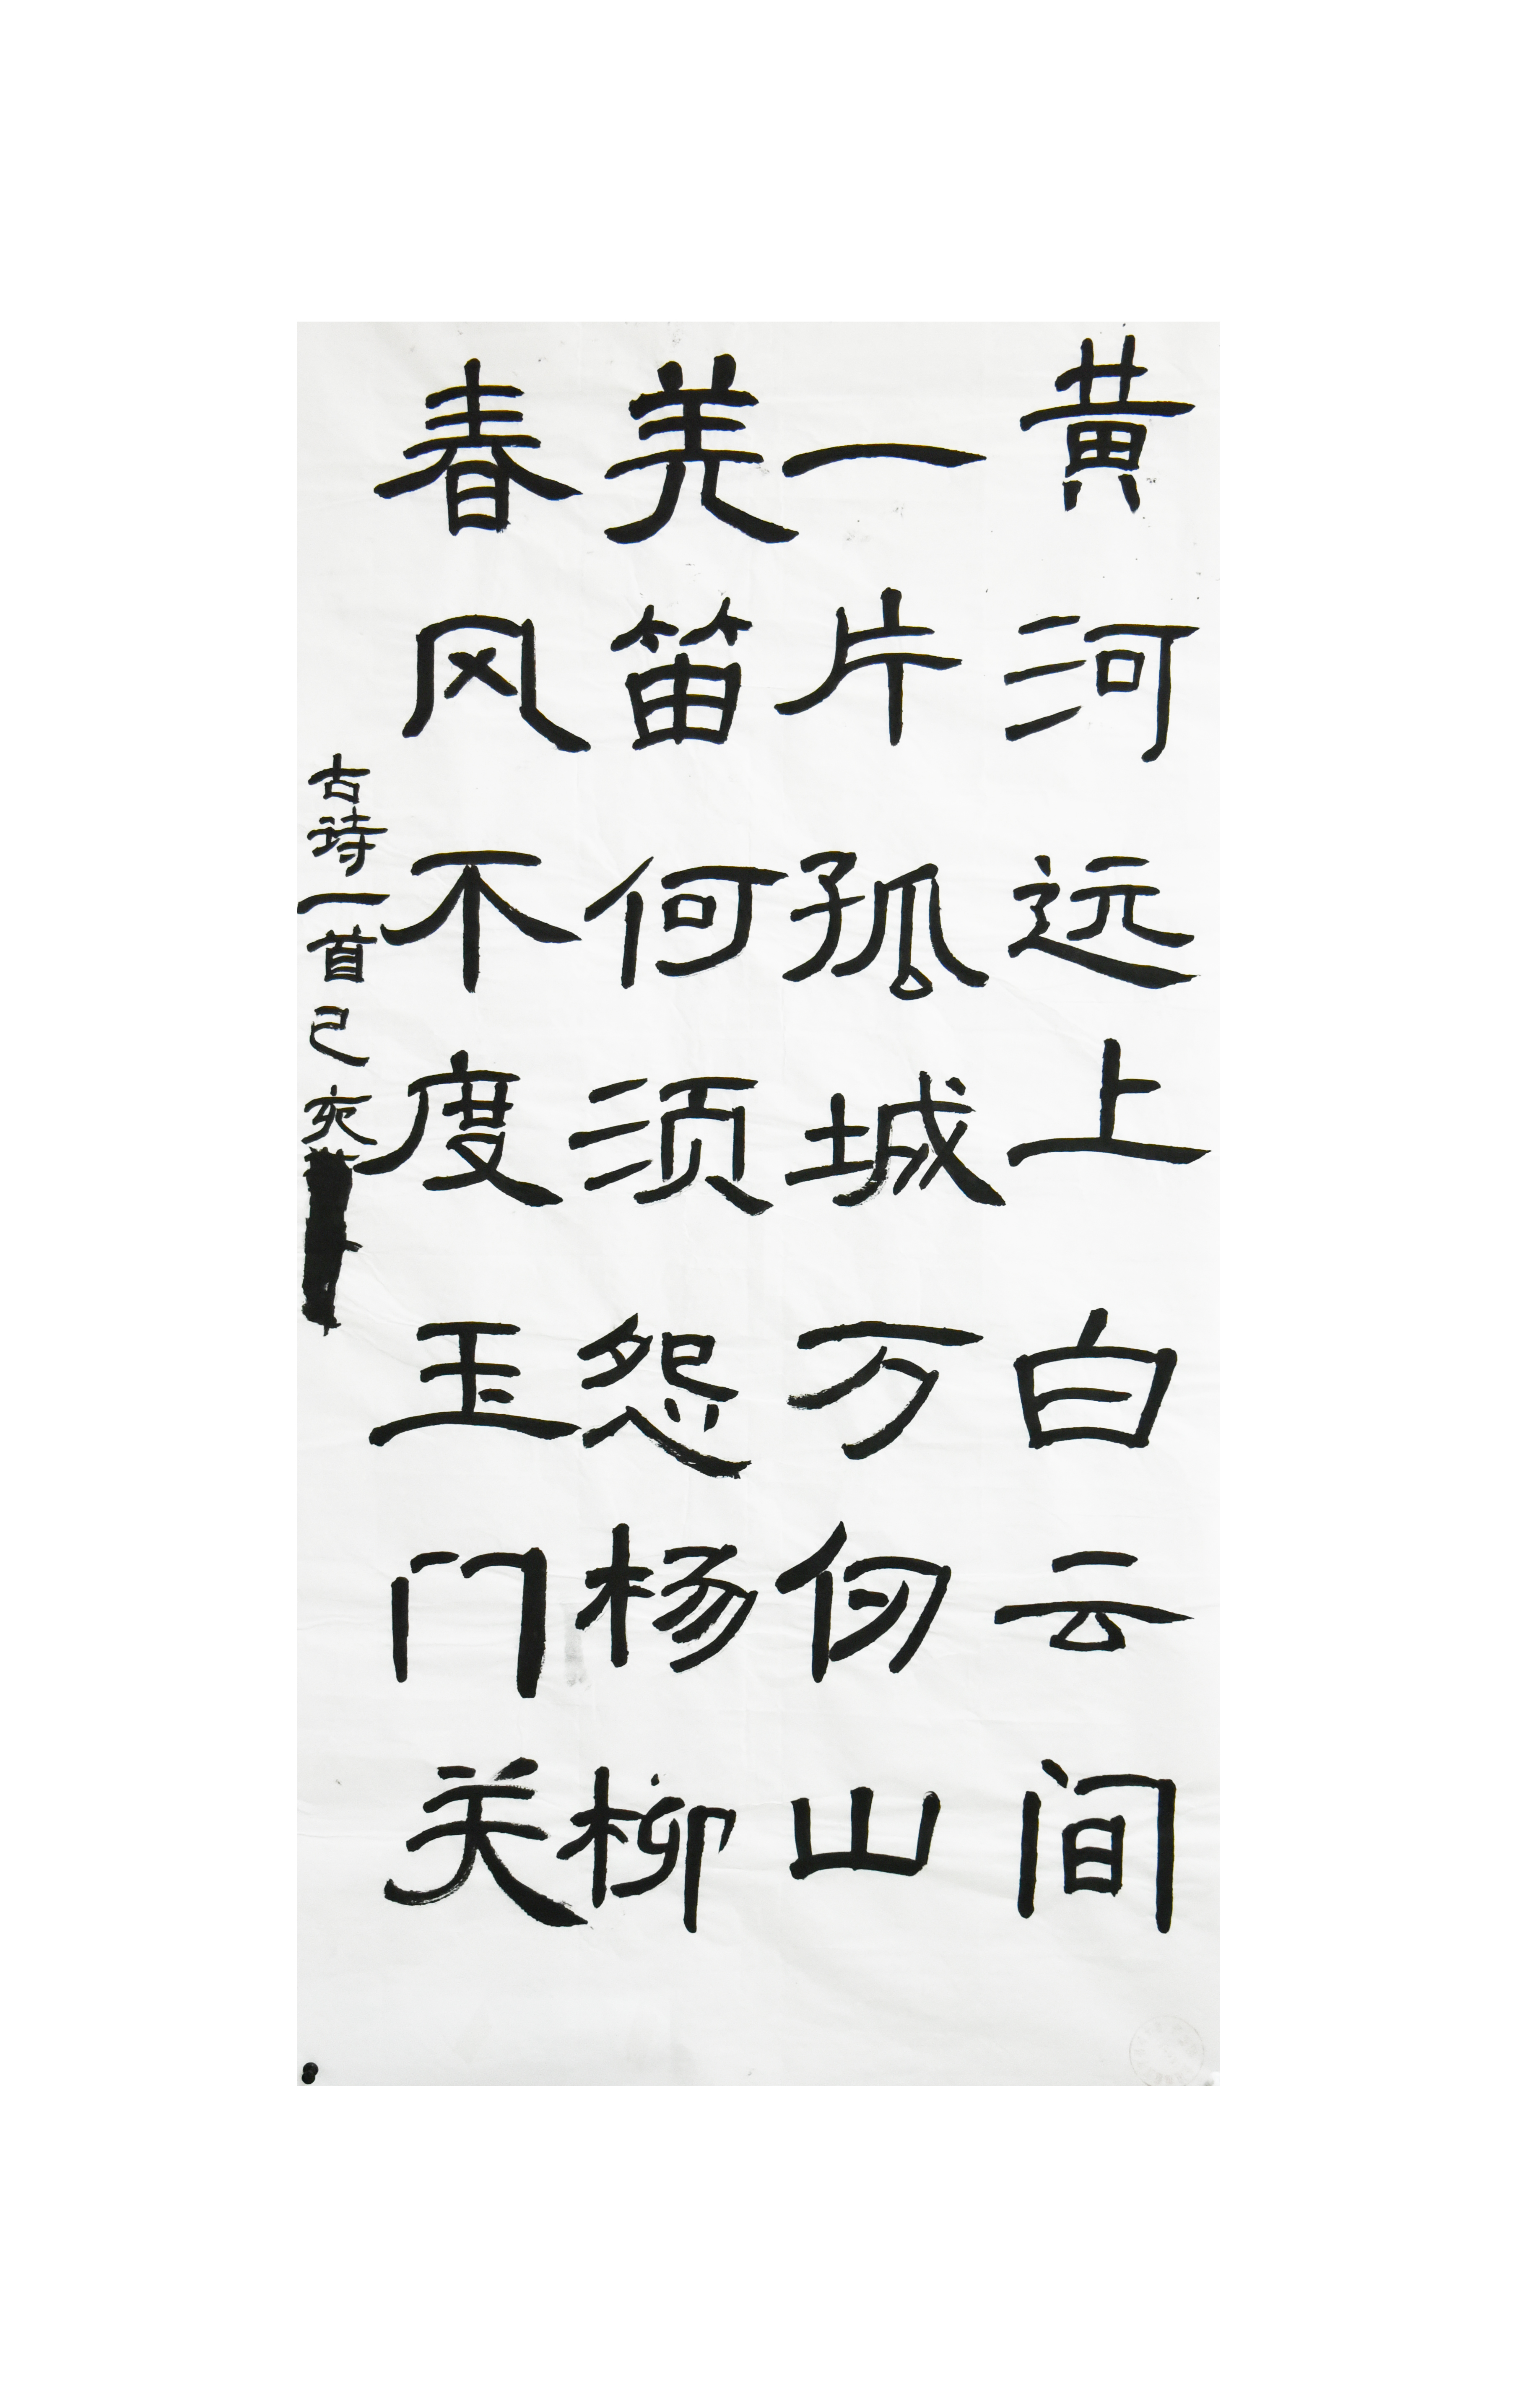 黄河远上白云间
一片孤城万仞山
羌笛何须怨杨柳
春风不度玉门关
古诗一首己亥